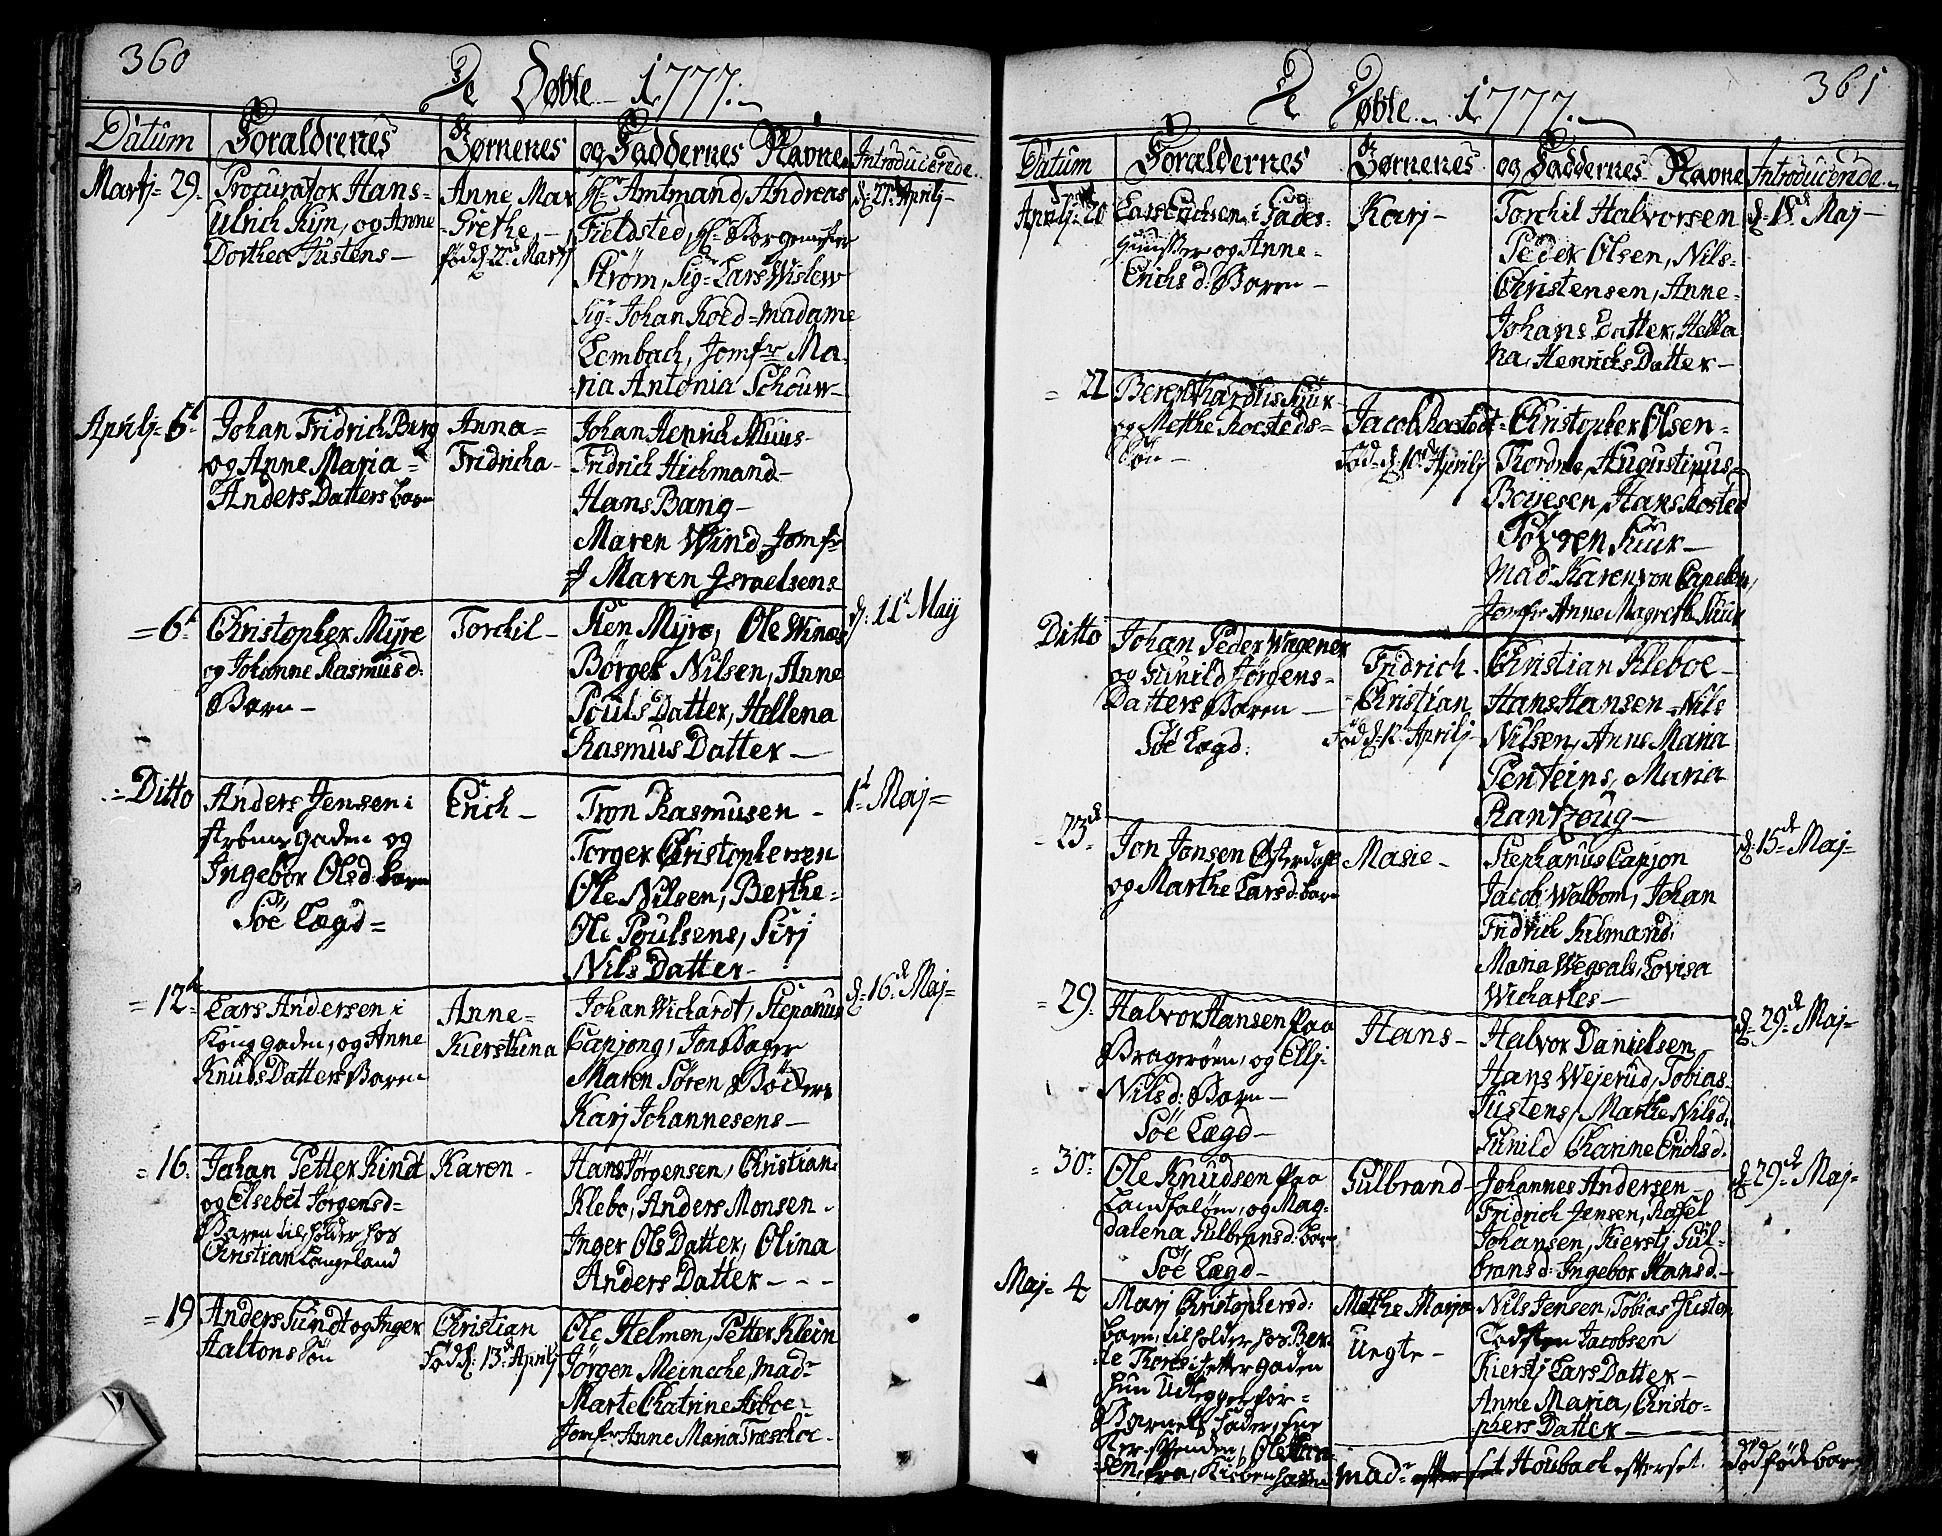 360
De Døbte 1777.
Datum Foraldrenes Børnenes og Faddernes Navne Introducerede
Martj 29. Procurator Hans
Ulrich Kyn, og Anne
Dorthea Justens
Anne Mar
Grethe,
fød d: 22d Martj
Hr Amtmand, Andreas
Fieldsted, Hr Borgemster
Strøm, Sig= Lars Wislew
Sig= Johan Koed= madame
Lembach, Jomfr Ma
ria Antonia Schouw
d: 27. Aprilj
Aprilj 6t Johan Fridrich Burg
og Anne Maria
Anders Datters barn
Anna
Fridricha
Johan Henrich Muus
Fridrich Hichmand
Hans Bang
Maren Wind Jomfr
Maren Israelsens
6t Christopher Myre
og Johanne Rasmus d:
Barn
Torchil
Sten Myre, Ole
Børger Nilsen, Anne
Pouls Datter, Hellena
Rasmus Datter
d: 11t Maij
Ditto Anders Jensen i
Strøms gaden og
Ingebor Ols d: barn
Søe Lægd
Erich
Tron Rasmusen
Torger Christophersen
Ole Nilsen, Berthe
Ole Poulsens, Sirj
Nils Datter
1t Maj
12t Lars Andersen i
Kong gaden, og Anne
Knuds Datters Baren
Anne
Kiersthena
Johan Wichardt, Stepanus
Capjong, Jon Bager
Maren Søren Bødkers
Karj Johannesens
d: 16d Maj
16. Johan Petter Kindt
og Elsebet Jørgens d
Baren tilholder hos
Christian Langeland
Karen
Hans Jørgensen, Christian
Klebo, Anders Monsen
Inger Ols Datter, Olina
Anders Datter
19 Anders Sundt og Inger
Haltons Søn
Christian
fød d: 13d Aprilj
Ole Helmen, Petter Klein
Jørgen Meincche, mad
Marte Chatrine Arboe
Jomfr Anne Maria Treschoe
361
De Døbte 1777.
Datum Foraldernes Børnenes og Faddernes Navne Introducerede
Aprilj 20 Lars Erichsen i
og Anne
Erichs d: Baren
Karj
Torchil Halvorsen
Peder Olsen, Nils
Christensen, Anne
Johans Datter, Hella
na, Henrichs Datter
d: 18d Maj
22 Bernthardus Suur
og Methe Rosteds
Søn
Jacob Rostedt
fød d: 10d Aprilj
Christopher Olsen
Thordne, Augustinus
Boyesen, Hans Rosted
Søvren Suur
Mad: Karen von Capelen,
Jomfr Anne Magrethe Suur
Ditto Johan Peder Wagener
og Gunild Jørgens
Datters Baren
Søe Lægd.
Fridrich
Christian
fød d: 12. Aprilj
Christian Kleboe
Hans Hansen Nils
Nilsen, Anne Maria
Penteins, Maria
Rantzoug
23d Jon Jonsen Østerdahl
og Marthe Lars d: barn
Masie
Stephanus Capjon
Jacob Walbom, Johan
Fridrich Kilmand
Maria Wegsals, Lovisa
Wichartes
d: 15d Maj
29. Halvor Hansen paa
Bragerøen, og Ellj
Nils d: Barn
Søe Lægd
Hans
Halvor Danielsen
Hans Wejerud, Tobias
Justens, Marthe Nils d:
Gunild Charine Erichs d.
d: 29d Maj
30 Ole Knudsen paa
Landfaløen, og Mag
dalena Gulbrans d: barn
Søe Lægd
Gulbrand
Johannes Andersen
Fridrich Jensen, Rasel
Johansen, Kierstj Gul
brans d: Ingebor Hans d.
d: 29d Maj
Maj 4 Marj Christophers d:
barn, tilholder hos Ber
te Thores i gaden
hun Udlegger for
Barnets fader,
Ole Han
sen, fra, Kiøbenhavn
Methe Marja
Uegte
Nils Jensen, Tobias Justen
Tosten Jacobsen
Kierstj Lars Datter
Anne Maria, Christo
phers Datter
mad Houbach efterset
død født barn